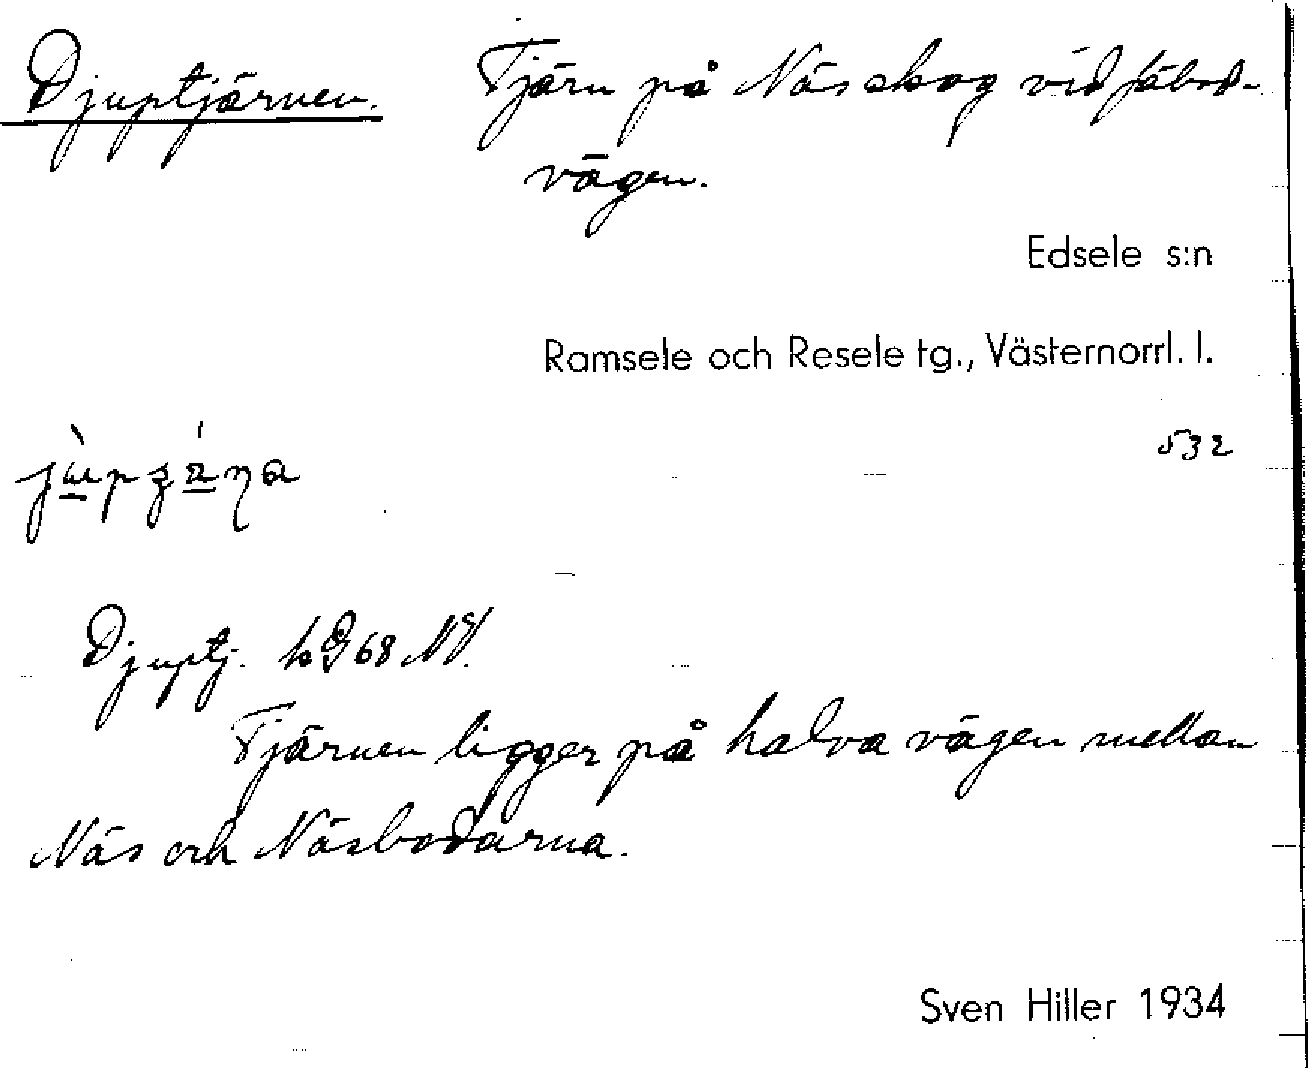 Djuptjärnen. Tjärn på Näs skog vid fäbod-
vägen.
Edsele s:n
Ramsele och Resele tg., Västernorrl. l.
532
Djuptj. 68 NV.
Tjärnen ligger på halva vägen mellan
Näs och Näsbodarna.
Sven Hiller 1934